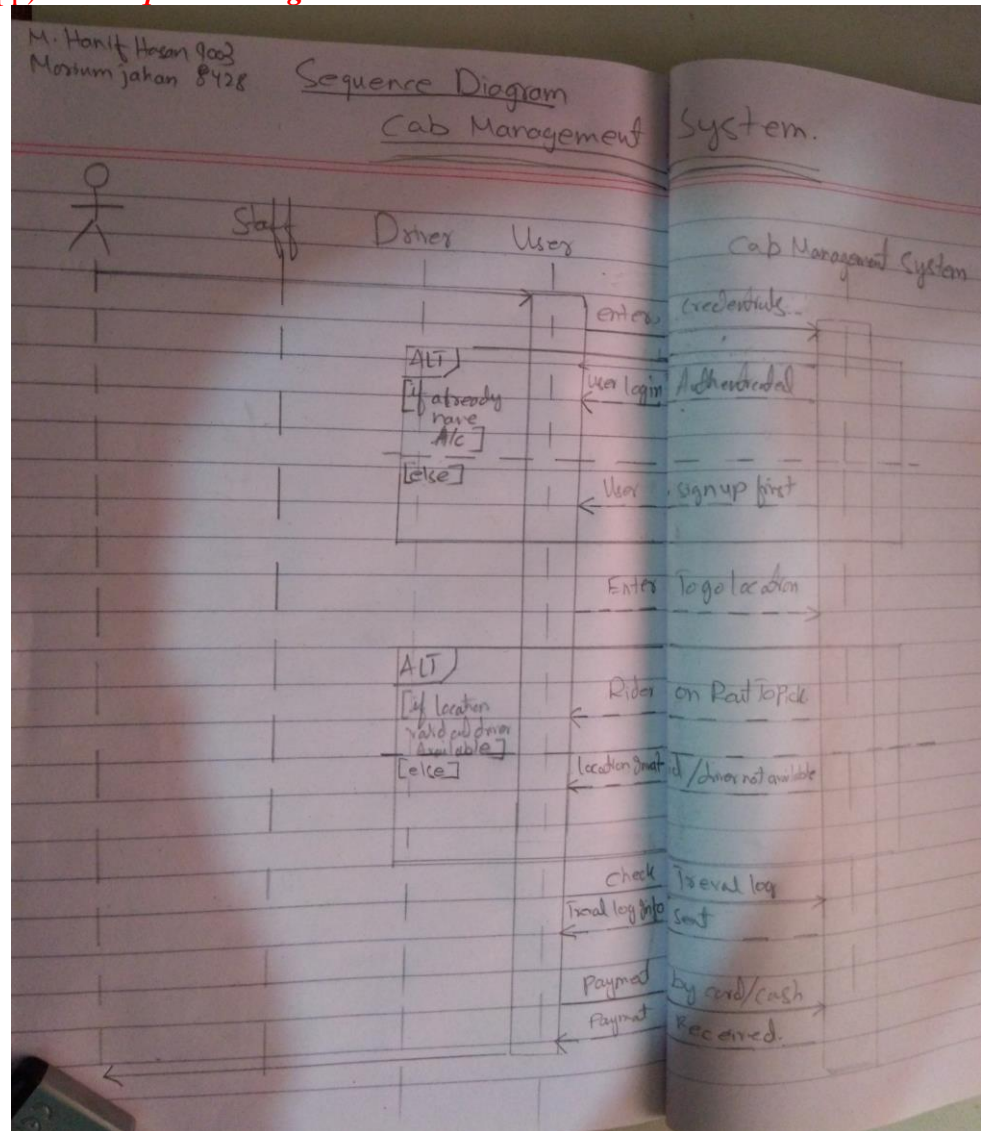 M. Hanif Hasan 9003
Morium jahan 8428
Sequence Diagram
Cab Management System.
Staff
Driver
User
Cab Management System
enter credentials..
ALT
[if already
have
A/c]
User login Authenticated
[else]
User signup first
Enter To go location
ALT
[if location
valid and driver
Available]
Rider on Rout To Pick
[else]
location Invalid/driver not available
Check Treval log
Treval log Info sent
Payment by card/cash
Payment Received.